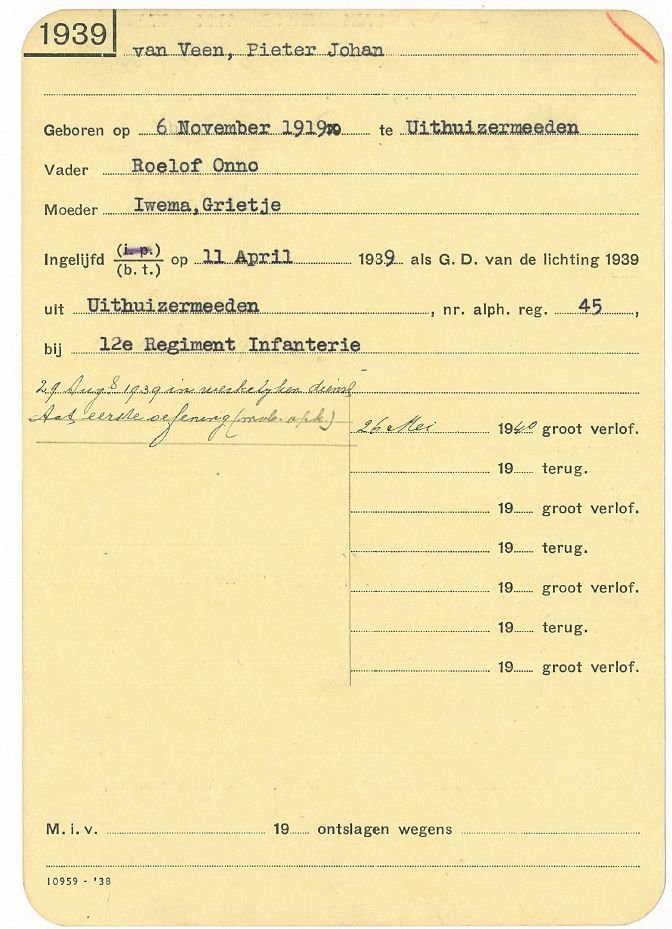 1939
van Veen, Pieter Johan
Geboren op 6 November 1919 te Uithuizermeeden
Vader Roelof Onno
Moeder Iwema, Grietje
Ingelijfd (i.p.) (b.t.) op 11 April 1939 als G. D. van de lichting 1939
uit Uithuizermeeden, nr. alph. reg. 45,
bij 12e Regiment Infanterie
29 Aug.s 1939 in werkelyken dienst
tot eerste oefening (mob. opk.)
26 Mei 1940 groot verlof.
19 terug.
19 groot verlof.
19 terug.
19 groot verlof.
19 terug.
19 groot verlof.
M. i. v. 19 ontslagen wegens
10959 - '38